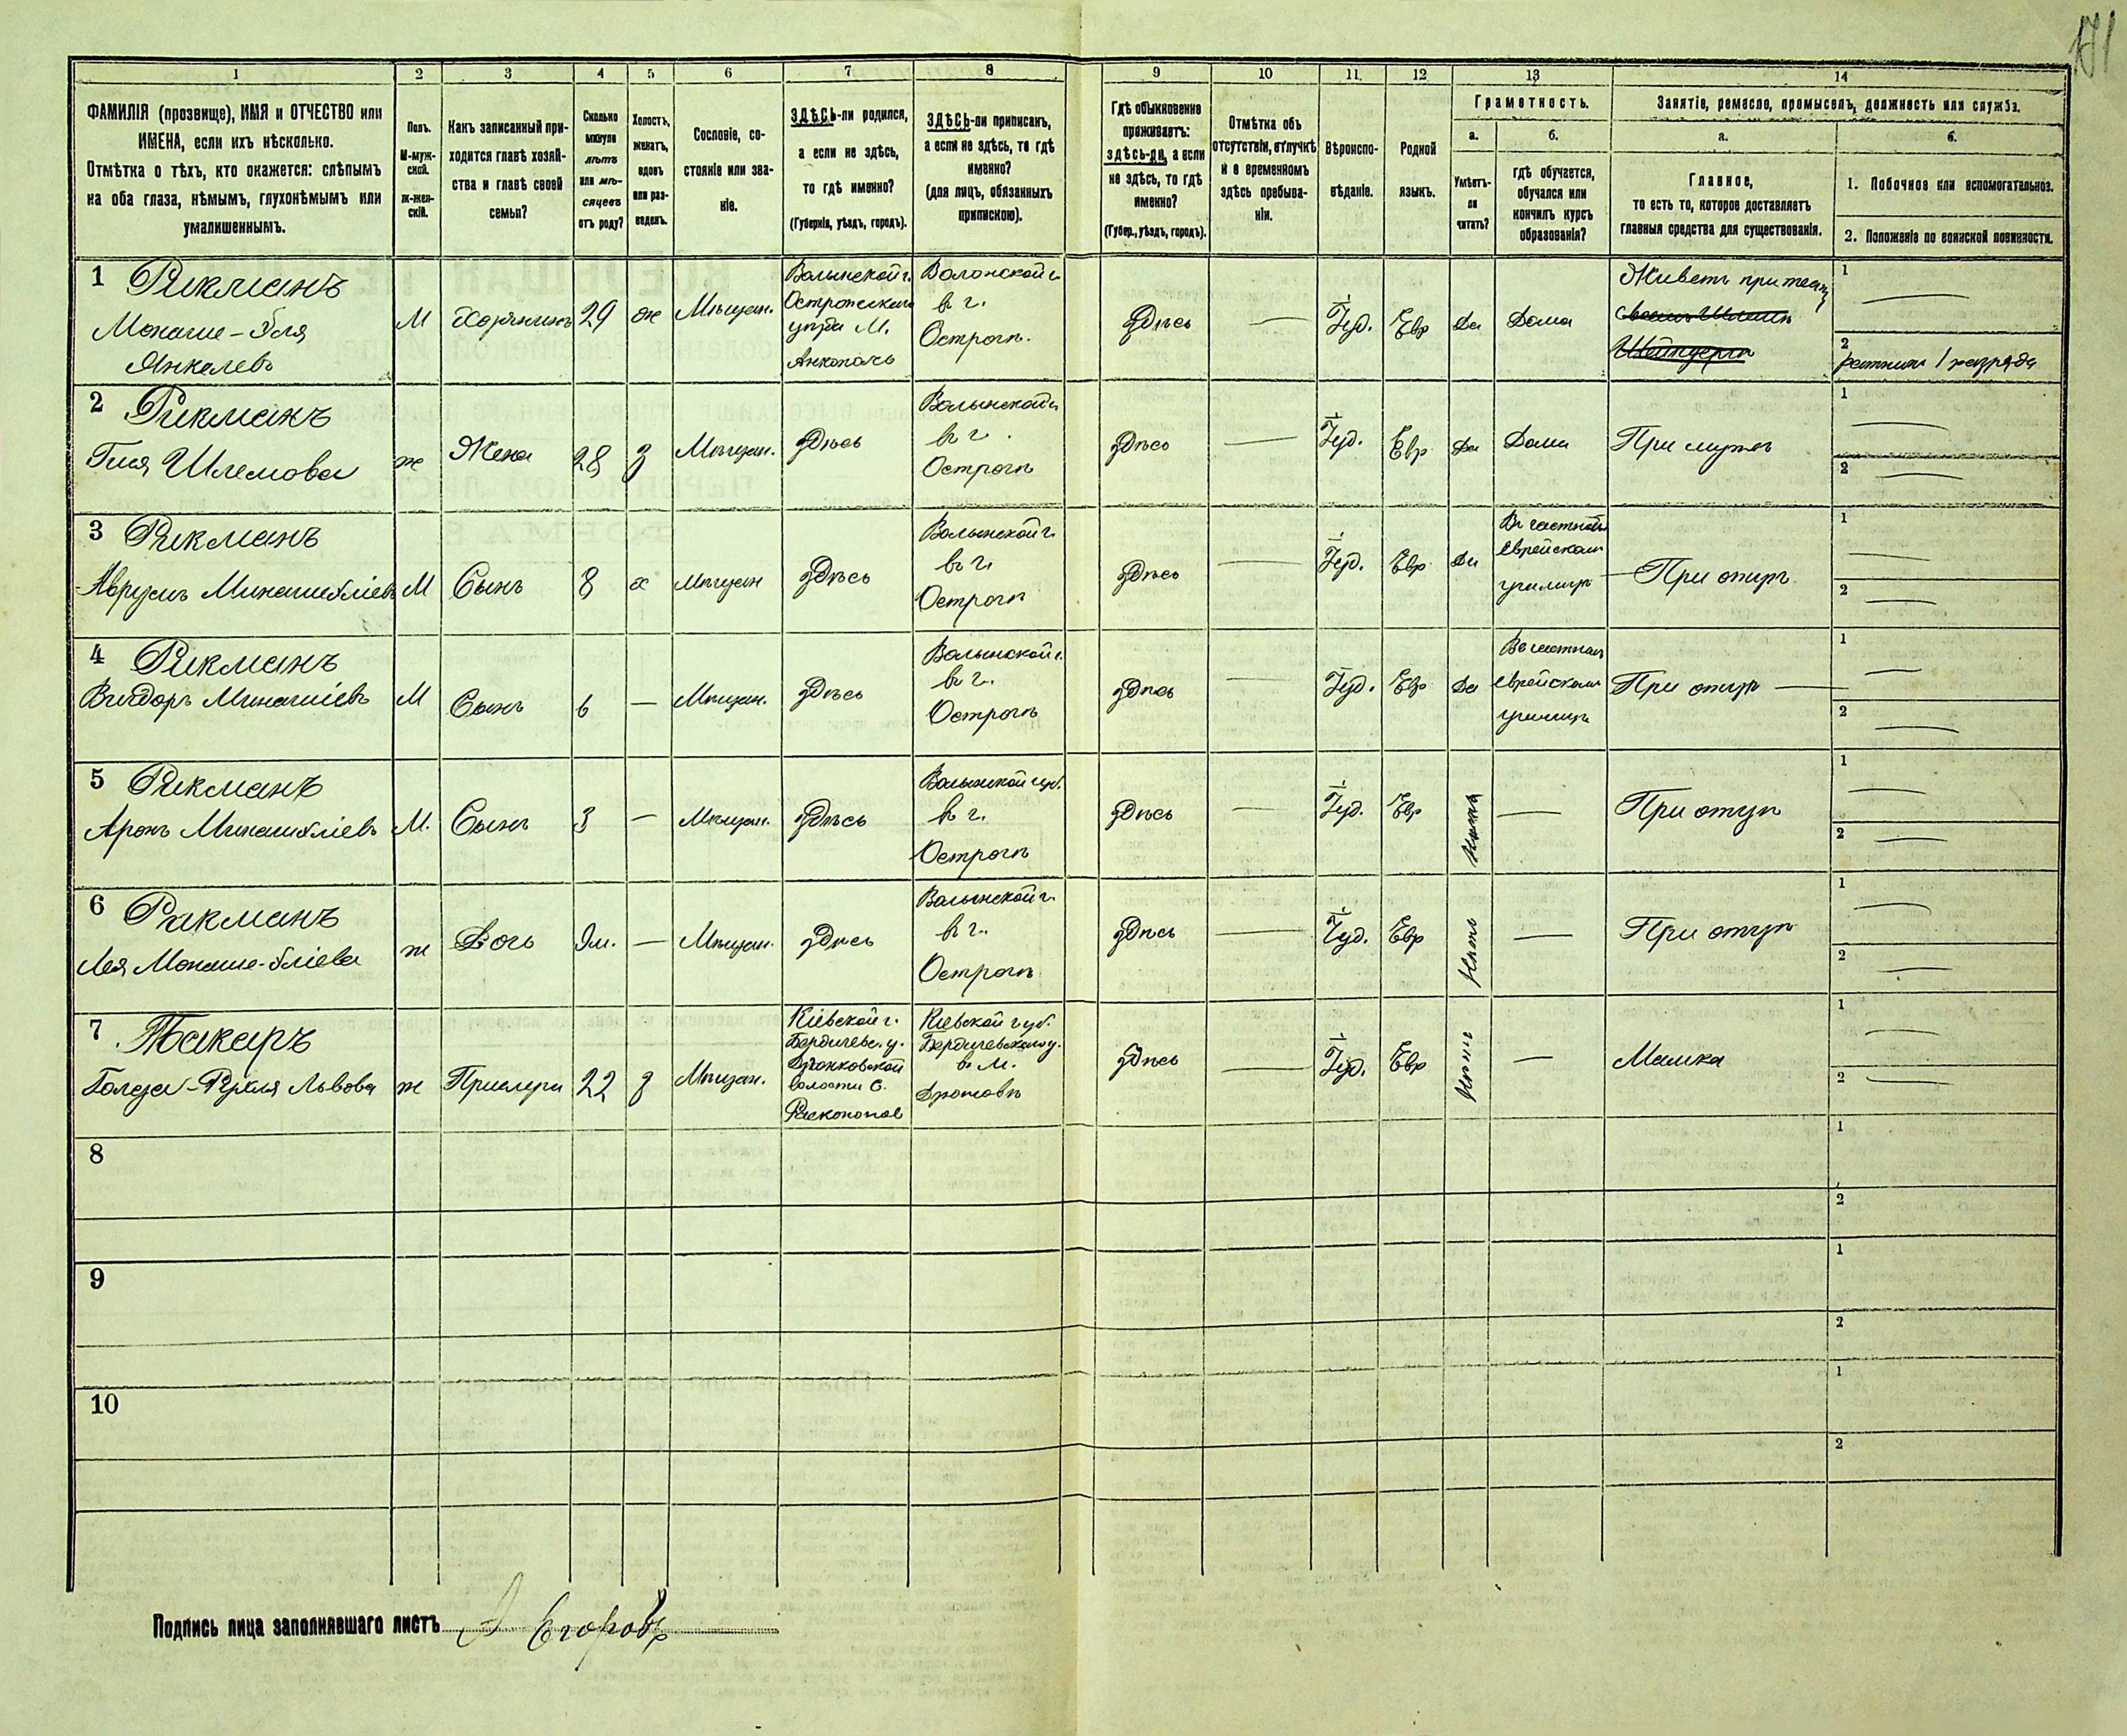 171
1 2 3 4 5 6 7 8 9 10 11 12 13 14
ФАМИЛІЯ (прозвище), ИМЯ и ОТЧЕСТВО или
ИМЕНА, если ихъ нѣсколько.
Отмѣтка о тѣхъ, кто окажется: слѣпымъ
на оба глаза, нѣмымъ, глухонѣмымъ или
умалишеннымъ.
Полъ.
М-муж-
ской.
ж-жен-
скій.
Какъ записанный при-
ходится главѣ хозяй-
ства и главѣ своей
семьи?
Сколько
минуло
лѣтъ
или мѣ-
сяцевъ
отъ роду?
Холостъ,
женатъ,
вдовъ
или раз-
веденъ.
Сословіе, со-
стояніе или зва-
ніе.
ЗДѢСЬ-ли родился,
а если не здѣсь,
то гдѣ именно?
(Губернія, уѣздъ, городъ).
ЗДѢСЬ-ли приписанъ,
а если не здѣсь, то гдѣ
именно?
(для лицъ, обязанныхъ
припискою).
Гдѣ обыкновенно
проживаетъ:
здѣсь-ли, а если
не здѣсь, то гдѣ
именно?
(Губер., уѣздъ, городъ).
Отмѣтка объ
отсутствіи, отлучкѣ
и о временномъ
здѣсь пребыва-
ніи.
Вѣроиспо-
вѣданіе.
Родной
языкъ.
Грамотность.
а.
Умѣетъ-
ли
читать?
б.
гдѣ обучается,
обучался или
кончилъ курсъ
образованія?
Занятіе, ремесло, промыселъ, должность или служба.
а.
Главное,
то есть то, которое доставляетъ
главныя средства для существованія.
б.
1. Побочное или вспомогательное.
2. Положеніе по воинской повинности.
1 Рикманъ
Монаше-Эля
Янкелевъ
М
Хозяинъ
29
ж
Мѣщан.
Волынской г.
Острожскаго
уѣзда М.
Аннополь
Волынской г.
въ г.
Острогѣ.
здѣсь
—
Іуд.
Евр
Да
Дома
Живетъ при тестѣ
1 —
2 ратникъ 1 разряда
2 Рикманъ
Гися Шлемова
ж
Жена
28
з
Мѣщан.
здѣсь
Волынской г.
въ г.
Острогѣ
здѣсь
—
Іуд.
Евр
Да
Дома
При мужѣ
1 —
2 —
3 Рикманъ
Аврумъ Минашиэліевъ
М
Сынъ
8
х
мѣщан
здѣсь
Волынской г.
въ г.
Острогѣ
здѣсь
—
Іуд.
Евр
Да
Въ частномъ
еврейскомъ
училищѣ
При отцѣ
1 —
2 —
4 Рикманъ
Вигдоръ Минашіевъ
М
Сынъ
6
—
Мѣщан.
здѣсь
Волынской г.
въ г.
Острогѣ
здѣсь
—
Іуд.
Евр
Да
Въ частномъ
еврейскомъ
училищѣ
При отцѣ —
1 —
2 —
5 Рикманъ
Аронъ Минашиэліевъ
М.
Сынъ
3
—
Мѣщан.
здѣсь
Волынской губ.
въ г.
Острогѣ
здѣсь
—
Іуд.
Евр
Нѣтъ
—
При отцѣ
1 —
2 —
6 Рикманъ
Лея Монаше-Эліева
ж
Дочь
9м.
—
Мѣщан.
здѣсь
Волынской г.
въ г.
Острогѣ
здѣсь
—
Іуд.
Евр
Нѣтъ
—
При отцѣ
1 —
2 —
7 Токаръ
Голда-Рухля Львова
ж
22
з
Мѣщан.
Кіевской г.
Бердичевс. у.
волости С.
Кіевской губ.
Бердичевскаго у.
въ М.
здѣсь
—
Іуд.
Евр
Нѣтъ
—
Мамка
1 —
2 —
8
1
2
9
1
2
10
1
2
Подпись лица заполнявшаго листъ А Егоровъ